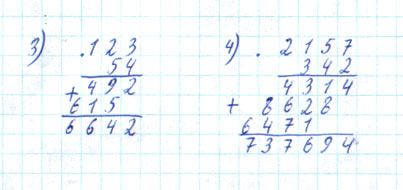 3) .123
54
+ 492
615
6642
4) . 2157
342
4314
+ 8628
6471
737694